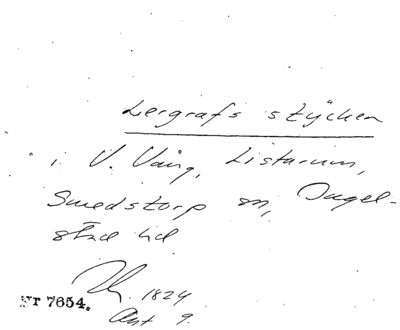 Lergrafs stycken
i V. Vång, Listarum,
Smedstorp sn, Ingel-
stad hd
1824
Nr 7654.
Ant 9.